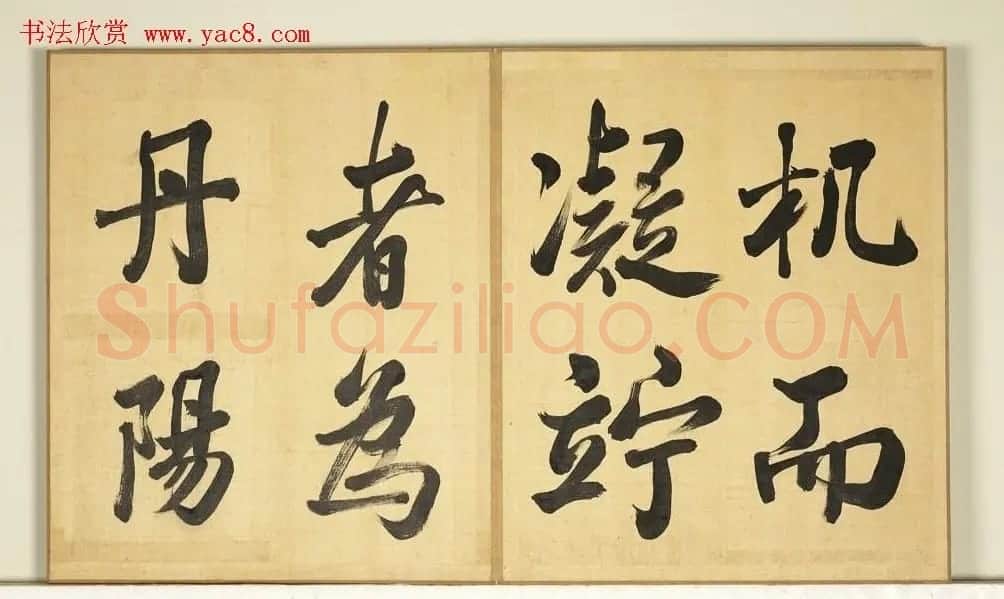 书法欣赏 www.yac8.com
机而
凝竚
者為
丹陽
Shufaziliao.COM